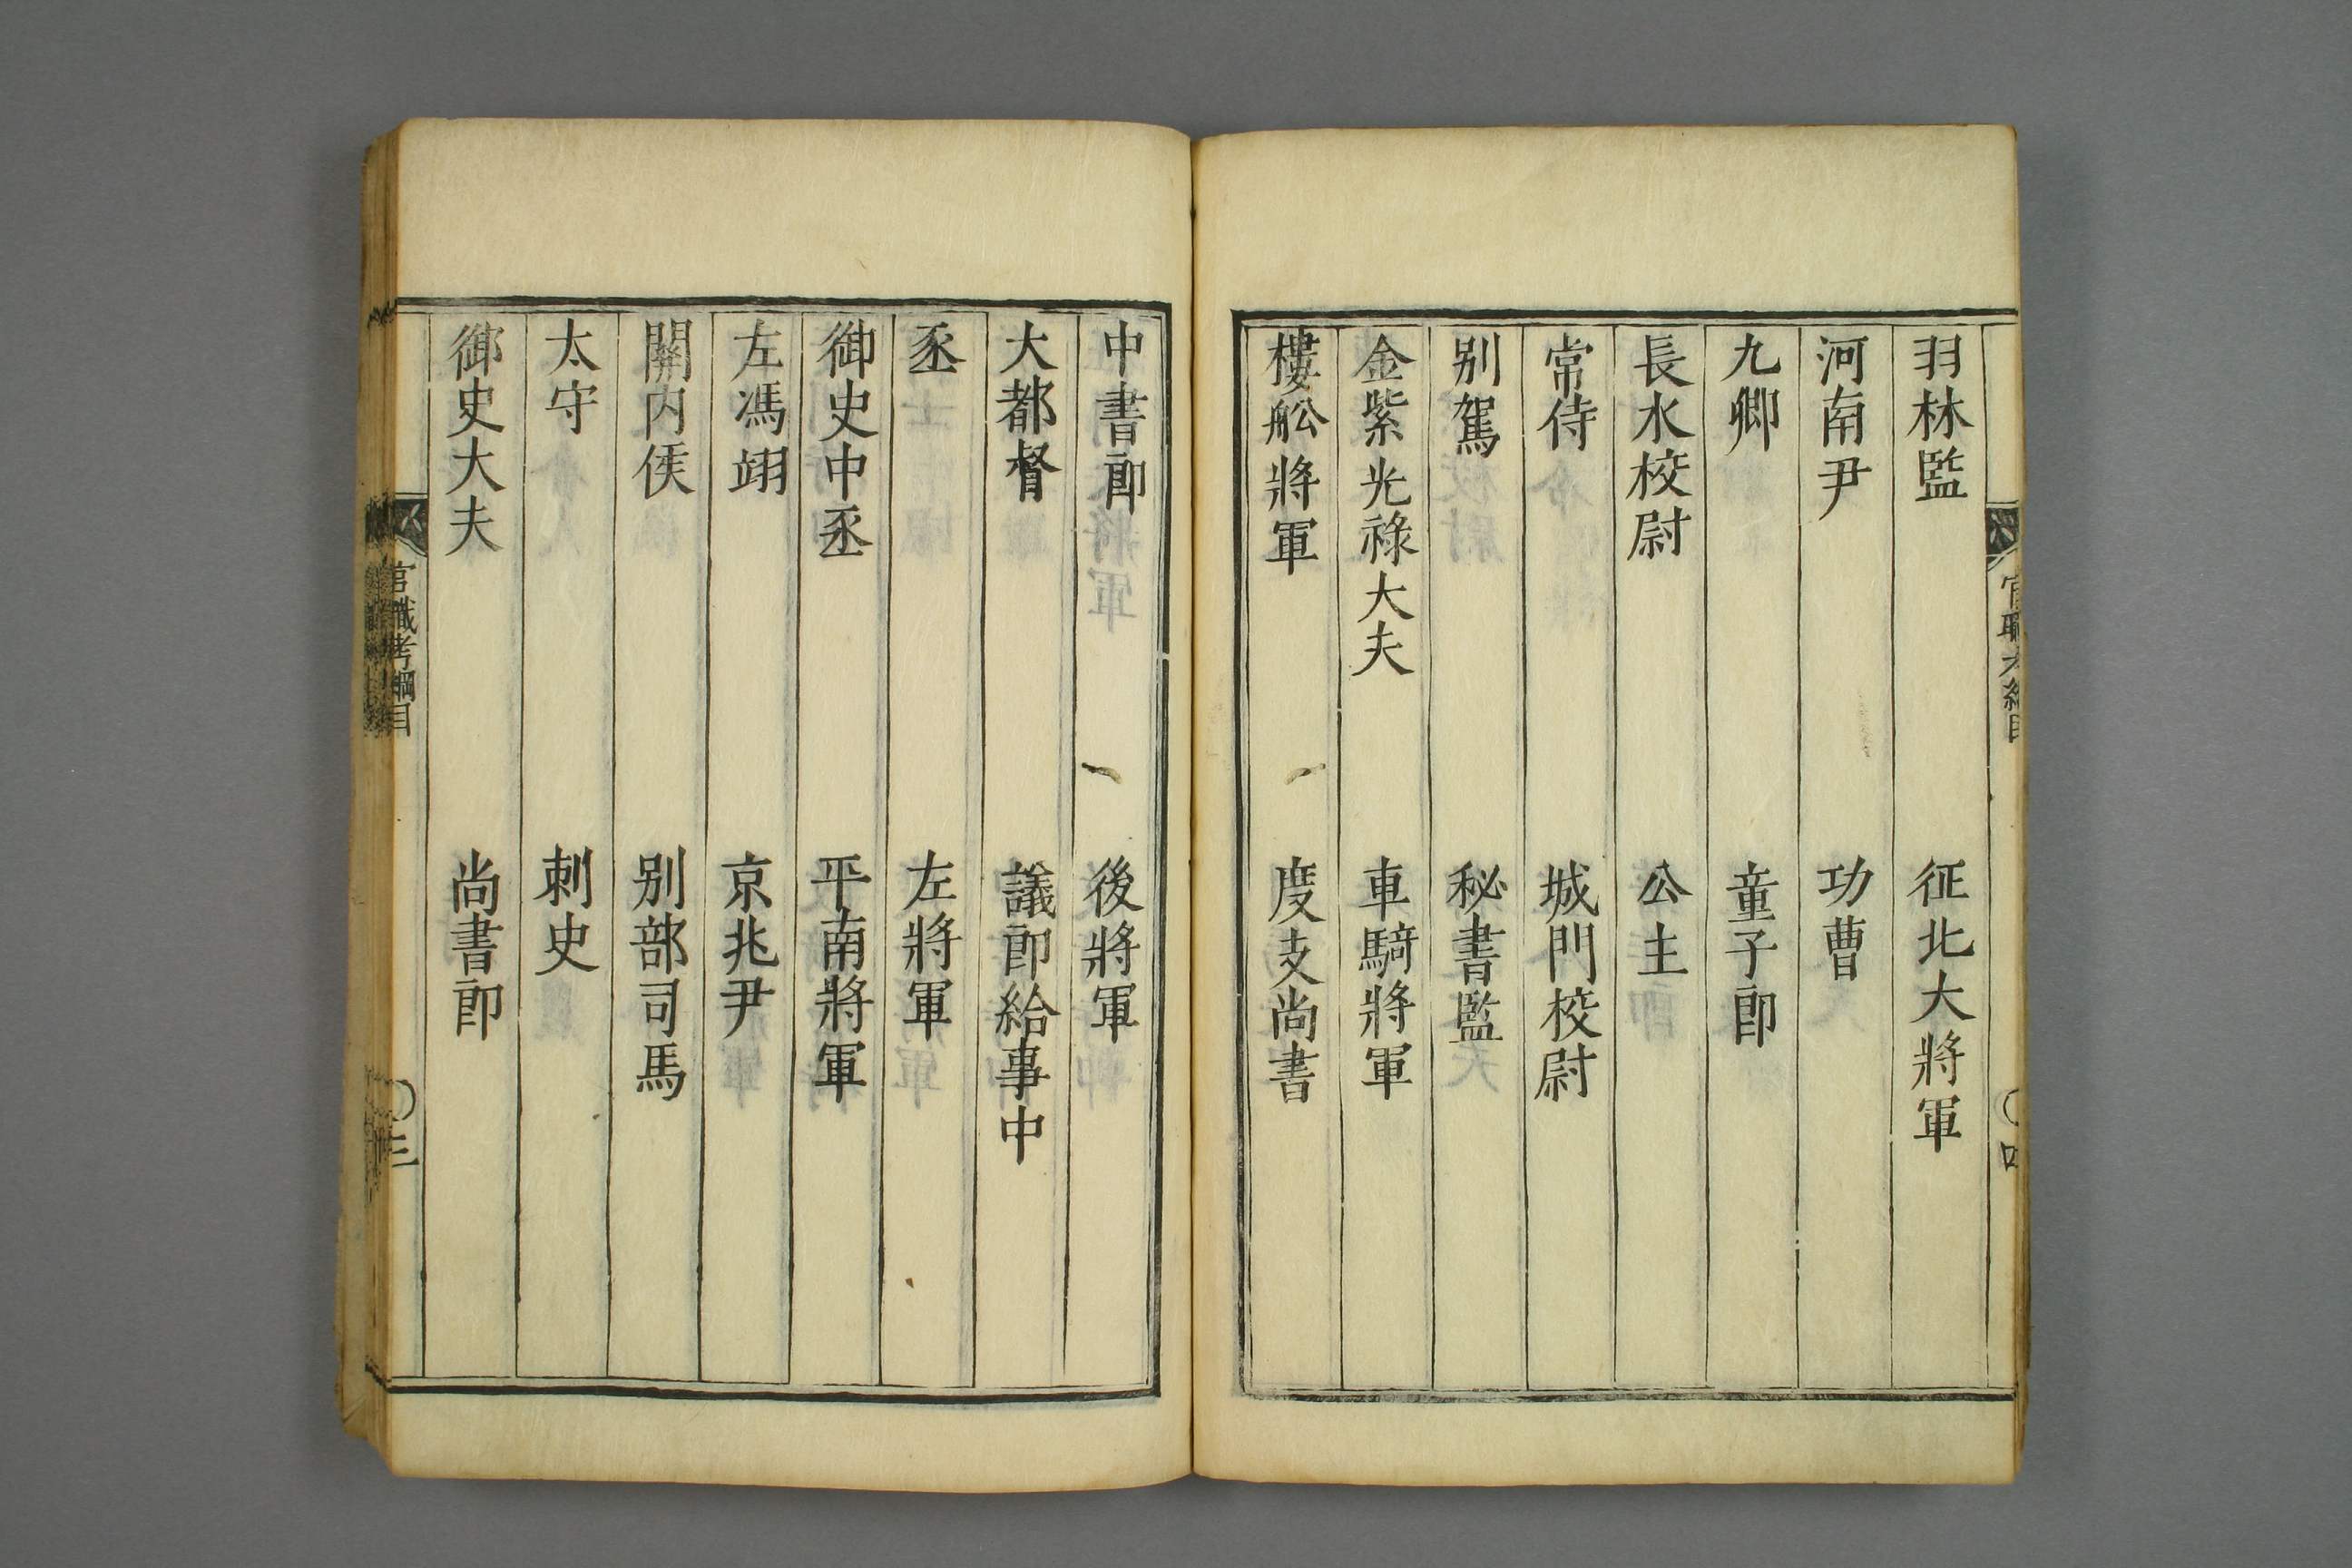 羽林監　征北大將軍
河南尹　功曹
九卿　童子郎
長水校尉　公主
常侍　城門校尉
别駕　秘書監
金紫光祿大夫　車騎將軍
樓舩將軍　度支尚書
中書郎　後將軍
大都督　議郎給事中
丞　左將軍
御史中丞　平南將軍
左馮翊　京兆尹
關内侯　别部司馬
太守　刺史
御史大夫　尚書郎
官職考綱目